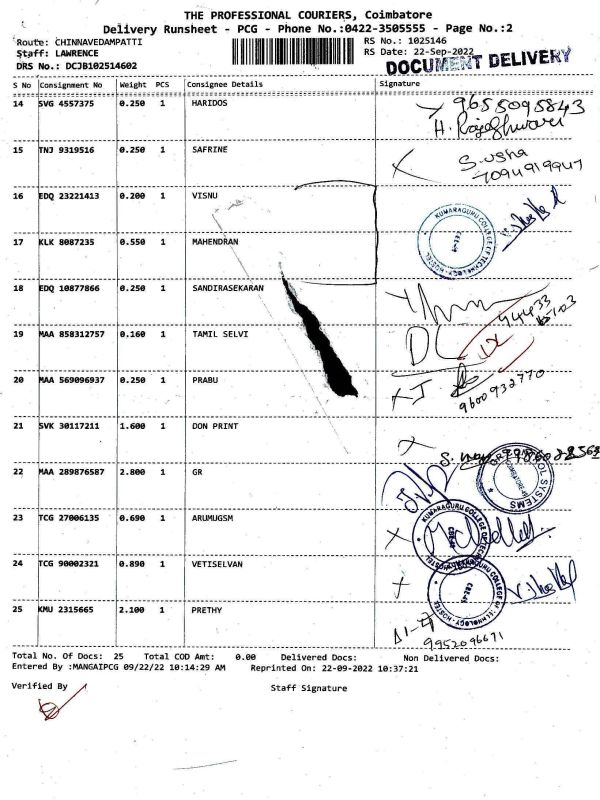 THE PROFESSIONAL COURIERS, Coimbatore
Delivery Runsheet - PCG - Phone No.:0422-3505555 - Page No.:2
Route: CHINNAVEDAMPATTI
RS No.: 1025146
Staff: LAWRENCE
RS Date: 22-Sep-2022
DRS No.: DCJB102514602
DOCUMENT DELIVERY
S No Consignment No Weight PCS Consignee Details Signature
14 SVG 4557375 0.250 1 HARIDOS
9655095843
H. Rajeshwari
15 TNJ 9319516 0.250 1 SAFRINE
S. usha
7094919947
16 EDQ 23221413 0.200 1 VISNU
KUMARAGURU COLLEGE OF TECHNOLOGY HOSTEL
17 KLK 8087235 0.550 1 MAHENDRAN
18 EDQ 10877866 0.250 1 SANDIRASEKARAN
19 MAA 858312757 0.160 1 TAMIL SELVI
DL
20 MAA 569096937 0.250 1 PRABU
9600932770
21 SVK 30117211 1.600 1 DON PRINT
22 MAA 289876587 2.800 1 GR
23 TCG 27006135 0.690 1 ARUMUGSM
24 TCG 90002321 0.890 1 VETISELVAN
25 KMU 2315665 2.100 1 PRETHY
9952096671
Total No. Of Docs: 25 Total COD Amt: 0.00 Delivered Docs: Non Delivered Docs:
Entered By :MANGAIPCG 09/22/22 10:14:29 AM Reprinted On: 22-09-2022 10:37:21
Verified By
Staff Signature